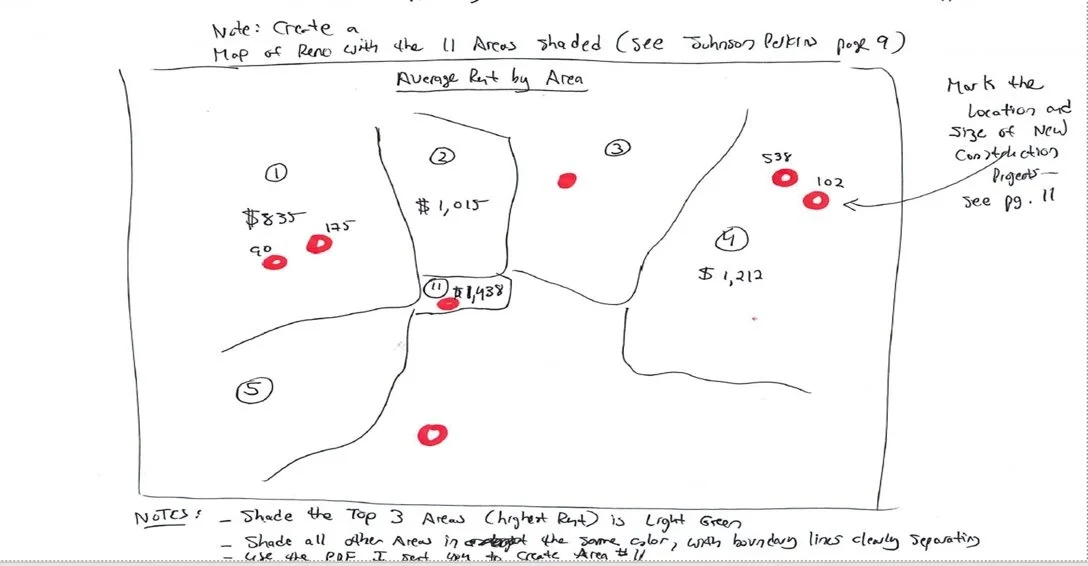 Note: Create a
Map of Reno with the 11 Areas shaded (see Johnson Perkins page 9)
Average Rent by Area
Mark the
Location and
Size of New
Construction
Projects—
see pg. 11
1
2
3
538
102
$835
$1,015
175
90
4
$1,212
11
$1,438
5
NOTES: – Shade the Top 3 Areas (highest Rent) is Light Green
– Shade all other Areas in the same color, with boundary lines clearly separating
– Use the PDF I sent you to Create Area #11